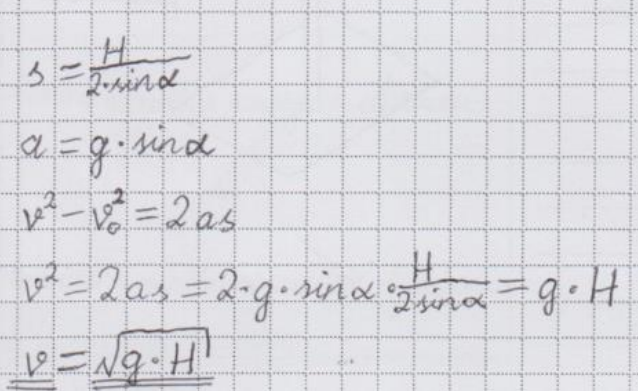 s = H / 2·sinα
a = g·sinα
v² - v₀² = 2as
v² = 2as = 2·g·sinα · H / 2sinα = g·H
v = √g·H